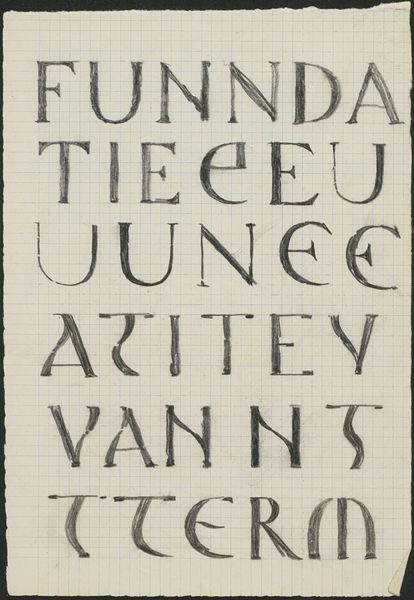 FUNNDA
TIEeEU
UUNEE
ATITEV
VANNT
TTERM